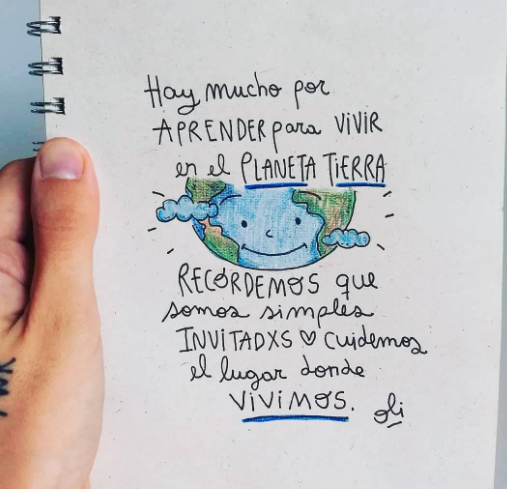 Hay mucho por
APRENDER para ViViR
en el PLANETA TiERRA
RECORDEMOS que
somos simples
INVITADXS ♡ cuidemos
el lugar donde
ViViMOS. oli